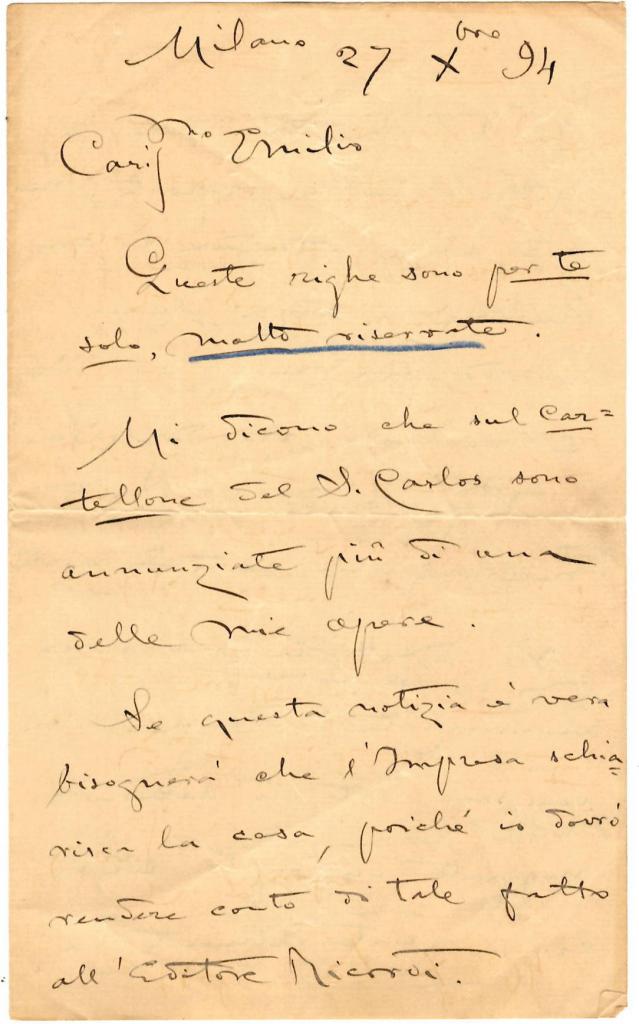 Milano 27 Xbre 94
Cariss.mo Emilio
Queste righe sono per te
solo, molto riservate.
Mi dicono che sul Car=
tellone del S. Carlos sono
annunziate più di una
delle mie opere.
Se questa notizia è vera
bisognerà che l'Impresa schia=
risca la cosa, poiché io dovrò
rendere conto di tale fatto
all'Editore Ricordi.